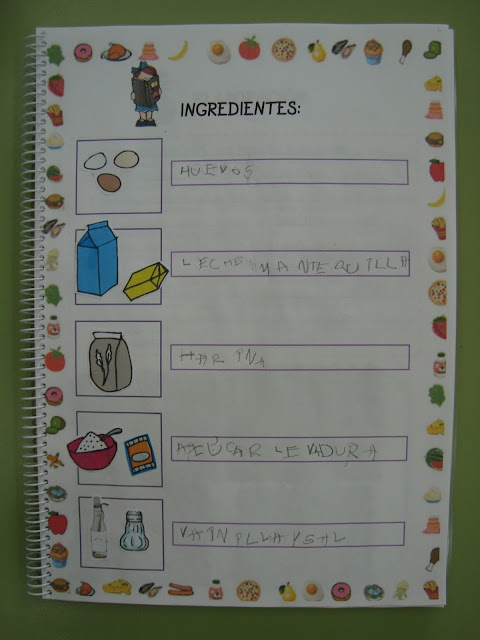 INGREDIENTES:
HUEVOS
LECHE MANTEQUILLA
HARINA
AZÚCAR LEVADURA
VAINILLA Y SAL